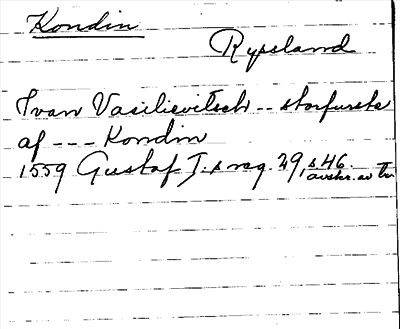 Kondin
Ryssland
Ivan Vasilievitsch -- storfurste
af --- Kondin
1559 Gustaf I:s reg. 29, s 46.
avskr. av Tr